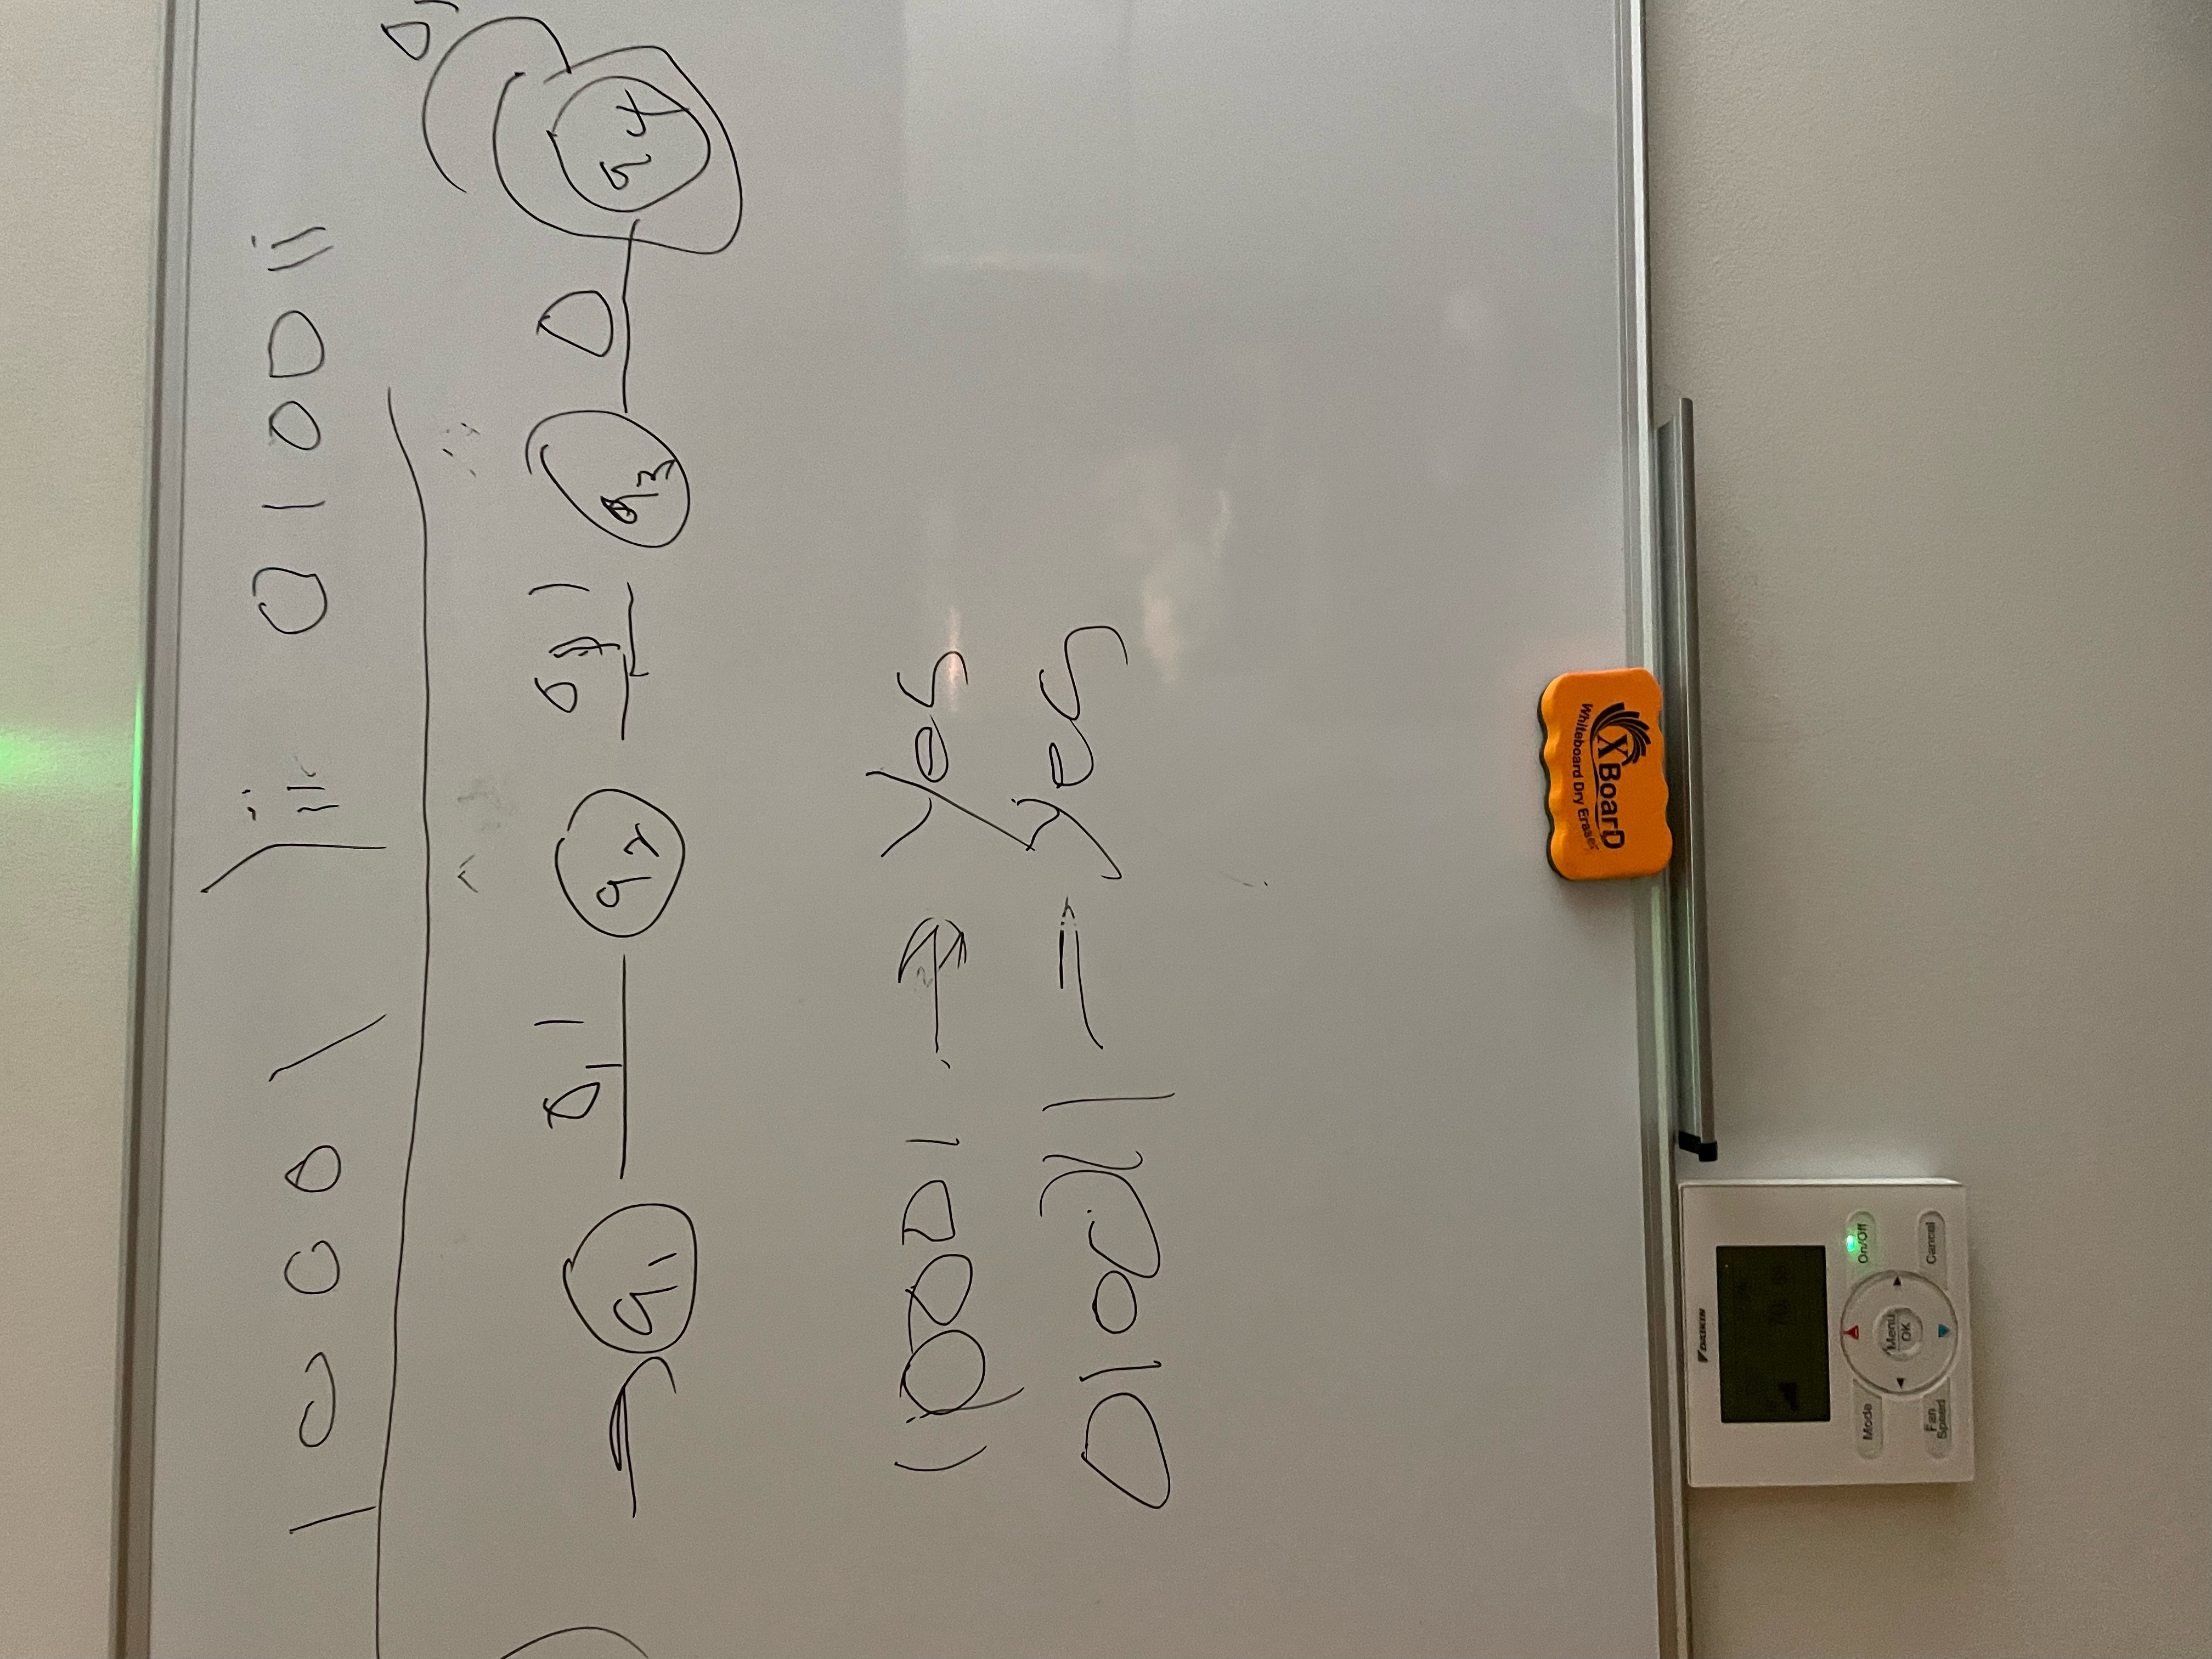 10001 iii 010011
0,
0,1 0,1 0
q1 q2 q3 q4
10001 → Yes
010011 → Yes
XBoarD
Whiteboard Dry Eraser
DAIKIN
Mode On/Off
Menu
OK
Fan Speed Cancel